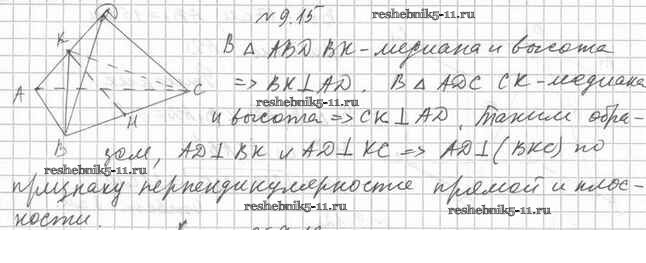 № 9.15 reshebnik5-11.ru
К
А
С
Н
В
В △ ABD BK - медиана и высота
=> BK⊥AD. В △ ADC CK - медиана
reshebnik5-11.ru
и высота => CK⊥AD. Таким обра-
зом, AD⊥BK и AD⊥KC => AD⊥(BKC) по
reshebnik5-11.ru
признаку перпендикулярности прямой и плос-
reshebnik5-11.ru reshebnik5-11.ru
кости.